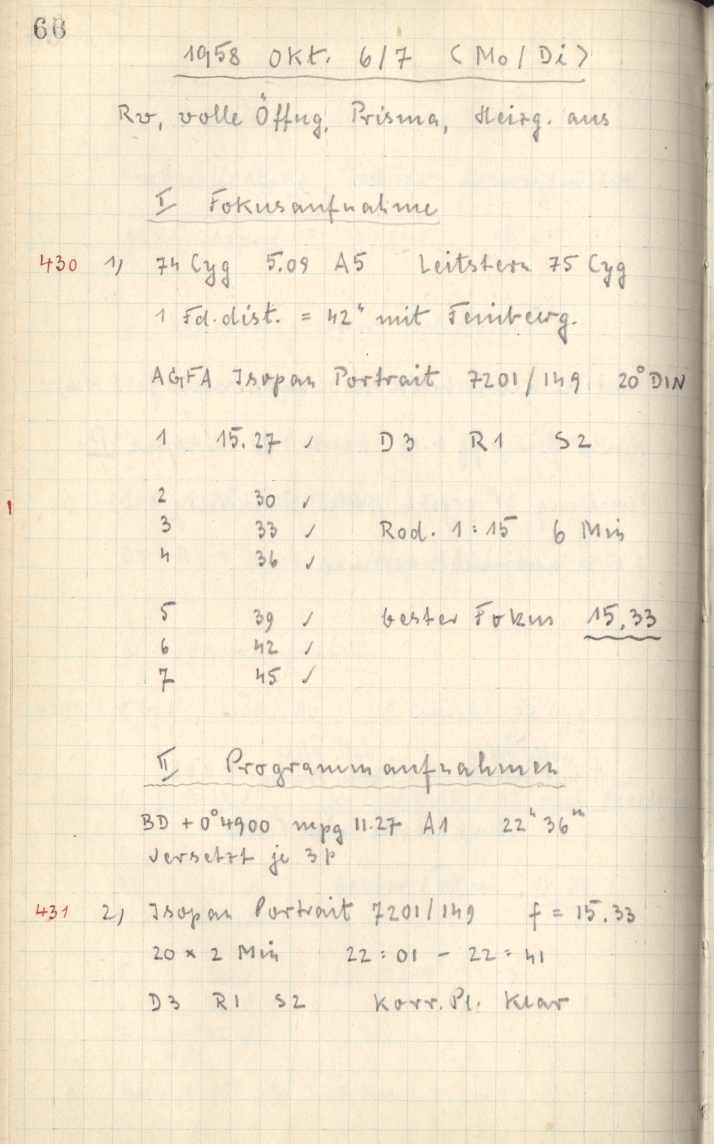 66
1958 Okt. 6/7 (Mo/Di)
Rv, volle Öffng, Prisma, Heizg. aus
I Fokusaufnahme
430 1) 74 Cyg 5.09 A5 Leitstern 75 Cyg
1 Fd.dist. = 42" mit Feinbewg.
AGFA Isopan Portrait 7201/149 20° DIN
1 15.27 ✓ D3 R1 S2
2 30 ✓
3 33 ✓ Rod. 1:15 6 Min
4 36 ✓
5 39 ✓ bester Fokus 15.33
6 42 ✓
7 45 ✓
II Programmaufnahmen
BD + 0° 4900 mpg 11.27 A1 22ʰ 36ᵐ
versetzt je 3P
431 2) Isopan Portrait 7201/149 f = 15.33
20 × 2 Min 22:01 - 22:41
D3 R1 S2 Korr.Pl. klar